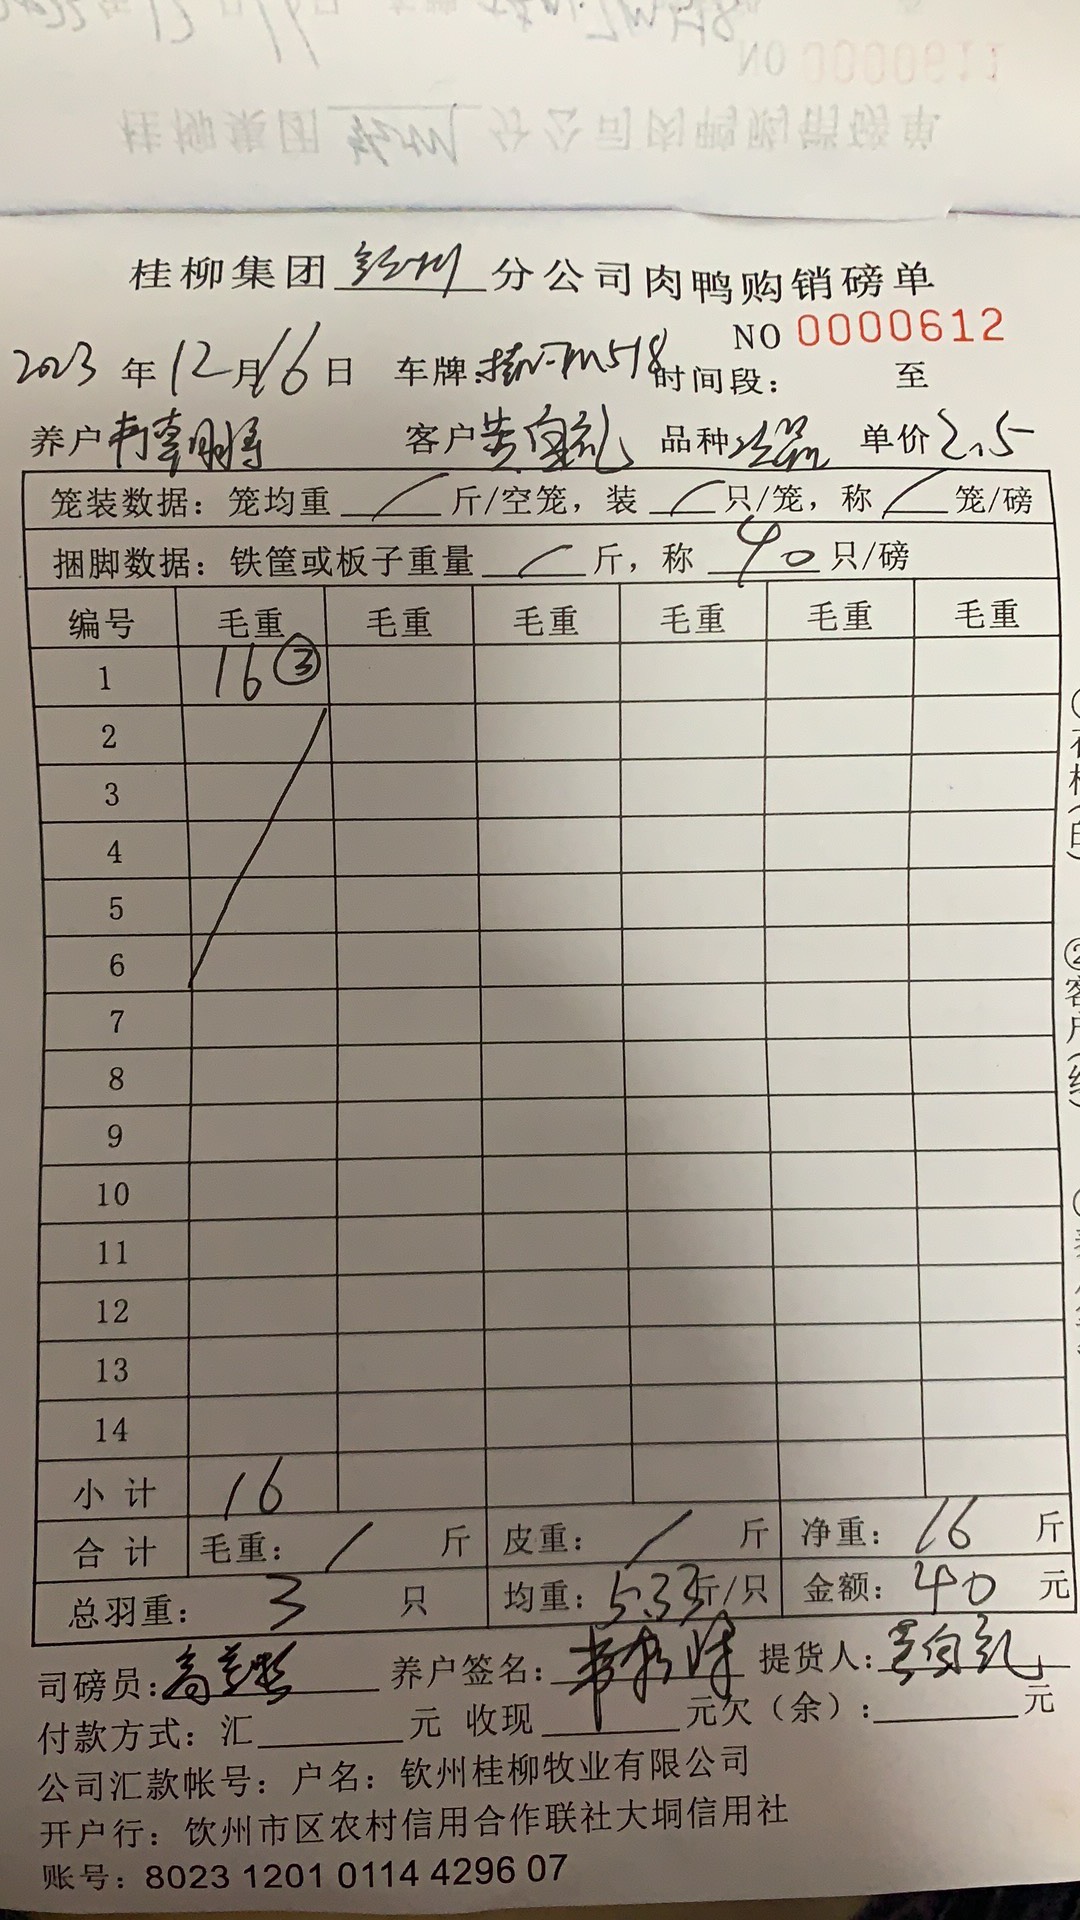 桂柳集团 钦州 分公司肉鸭购销磅单
NO 0000612
2023 年 12 月 16 日 车牌: 时间段: 至
养户 客户 品种 单价 2.5
笼装数据: 笼均重 / 斤/空笼, 装 / 只/笼, 称 / 笼/磅
捆脚数据: 铁筐或板子重量 / 斤, 称 40 只/磅
编号 毛重 毛重 毛重 毛重 毛重 毛重
1 16 ③
2
3
4
5
6
7
8
9
10
11
12
13
14
小计 16
合计 毛重: / 斤 皮重: / 斤 净重: 16 斤
总羽重: 3 只 均重: 5.33 斤/只 金额: 40 元
司磅员: 养户签名: 提货人:
付款方式: 汇 元 收现 元欠(余): 元
公司汇款帐号: 户名: 钦州桂柳牧业有限公司
开户行: 钦州市区农村信用合作联社大垌信用社
账号: 8023 1201 0114 4296 07